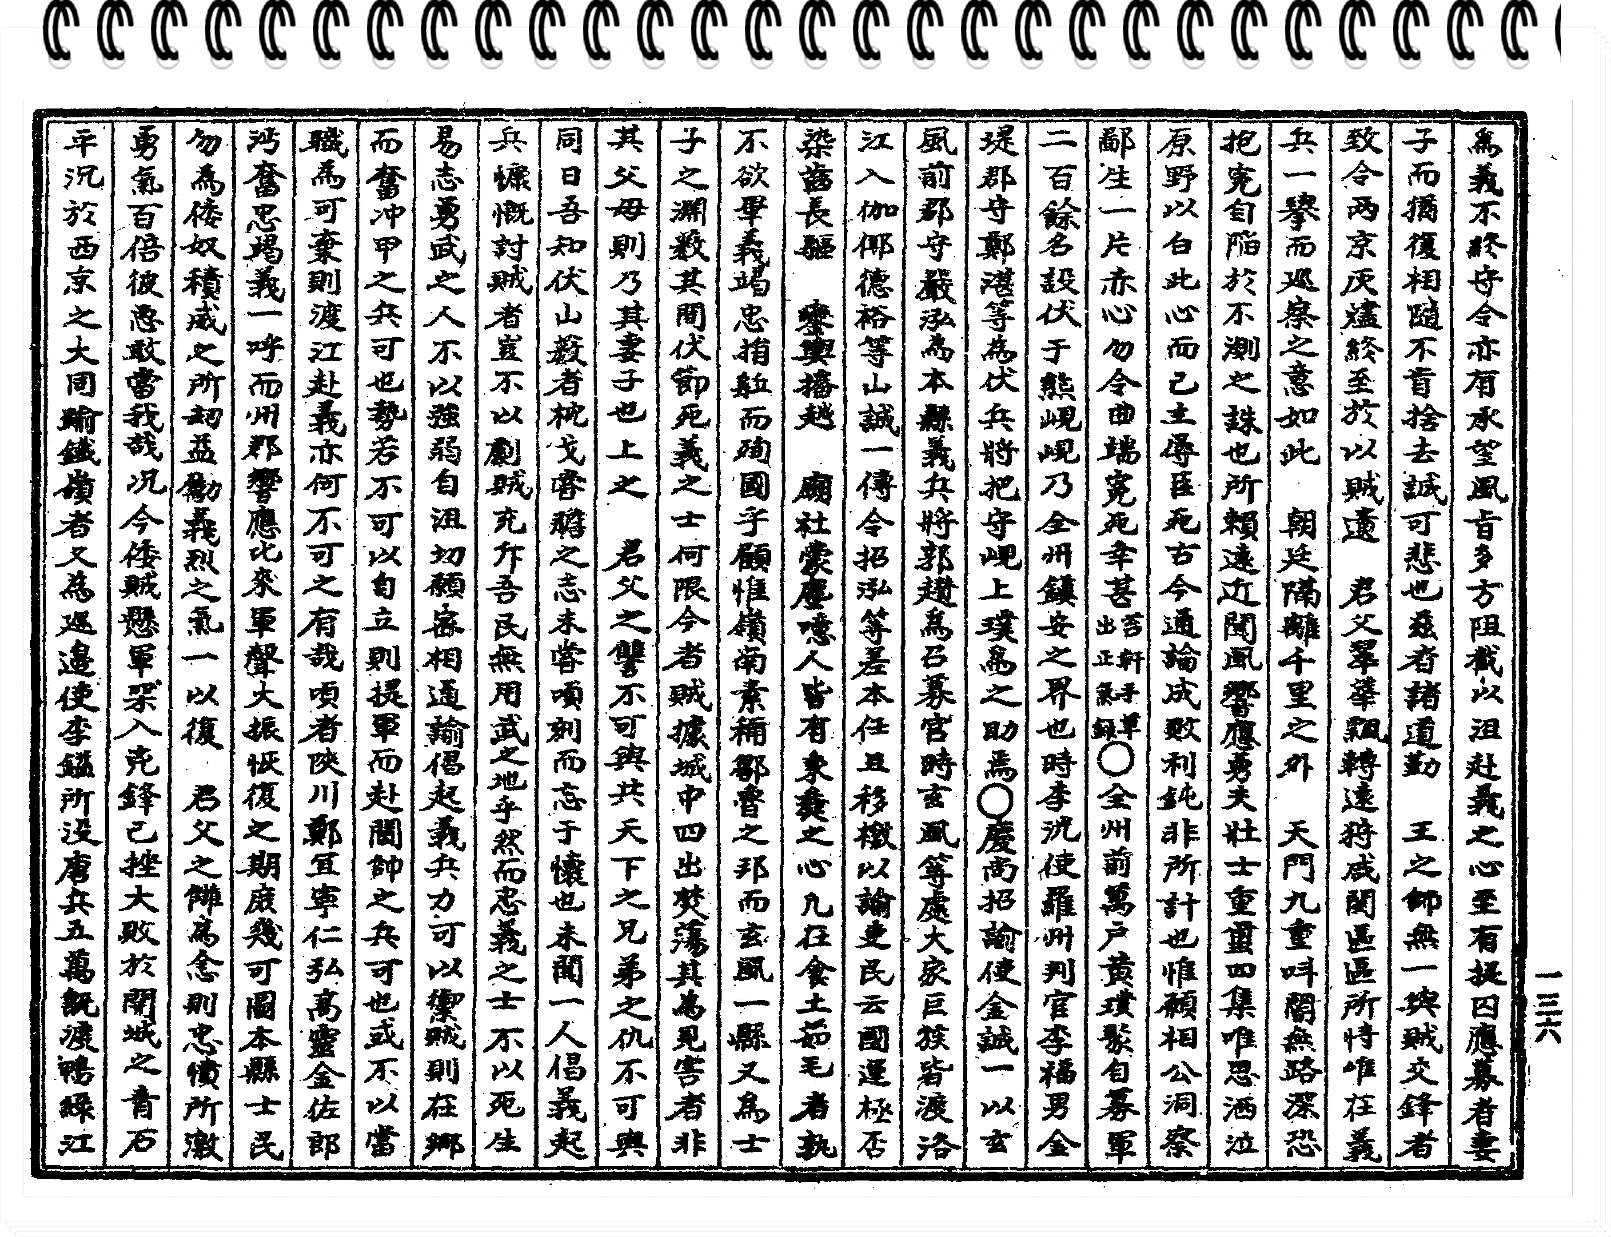 爲義不終守令亦有承望風旨多方阻截以沮赴義之心至有提囚應募者妻
子而猶復相隨不肯捨去誠可悲也玆者諸道勤　王之師無一與賊交鋒者
致令兩京灰燼終至於以賊遺　君父翠華飄轉遠狩咸關區區所恃唯在義
兵一擧而巡察之意如此　朝廷隔離千里之外　天門九重叫閽無路深恐
抱寃自陷於不測之誅也所賴遠近聞風響應勇夫壯士重圍四集唯思洒泣
原野以白此心而已主辱臣死古今通論成敗利鈍非所計也惟願相公洞察
鄙生一片赤心勿令曲端寃死幸甚出苔軒手草正氣錄○全州前萬戶黃璞聚自募軍
二百餘名設伏于熊峴峴乃全州鎭安之界也時李洸使羅州判官李福男金
堤郡守鄭湛等爲伏兵將把守峴上璞爲之助焉○慶尙招諭使金誠一以玄
風前郡守嚴泓爲本縣義兵將郭趲爲召募官時玄風等處大家巨簇皆渡洛
江入伽倻德裕等山誠一傳令招泓等差本任且移檄以諭吏民云國運極否
染齒長驅　鑾輿播越　廟社蒙塵噫人皆有秉彝之心凡在食土茹毛者孰
不欲畢義竭忠捐軀而殉國乎顧惟嶺南素稱鄒魯之邦而玄風一縣又爲士
子之淵藪其間伏節死義之士何限今者賊據城中四出焚蕩其爲見害者非
其父母則乃其妻子也上之　君父之讐不可與共天下之兄弟之仇不可與
同日吾知伏山藪者枕戈嘗膽之志未嘗頃刻而忘于懷也未聞一人倡義起
兵慷慨討賊者豈不以劇賊充斥吾民無用武之地乎然而忠義之士不以死生
易志勇武之人不以强弱自沮切願密相通諭倡起義兵力可以禦賊則在鄕
而奮冲甲之兵可也勢若不可以自立則提軍而赴閫帥之兵可也或不以當
職爲可棄則渡江赴義亦何不可之有哉頃者陜川鄭宜寧仁弘高靈金佐郎
沔奮忠竭義一呼而州郡響應比來軍聲大振恢復之期庶幾可圖本縣士民
勿爲倭奴積威之所刼益勵義烈之氣一以復　君父之讎爲念則忠憤所激
勇氣百倍彼惡敢當我哉况今倭賊懸軍深入兇鋒已挫大敗於開城之靑石
平沉於西京之大同踰鐵嶺者又爲巡邊使李鎰所沒唐兵五萬旣渡鴨綠江
一三六